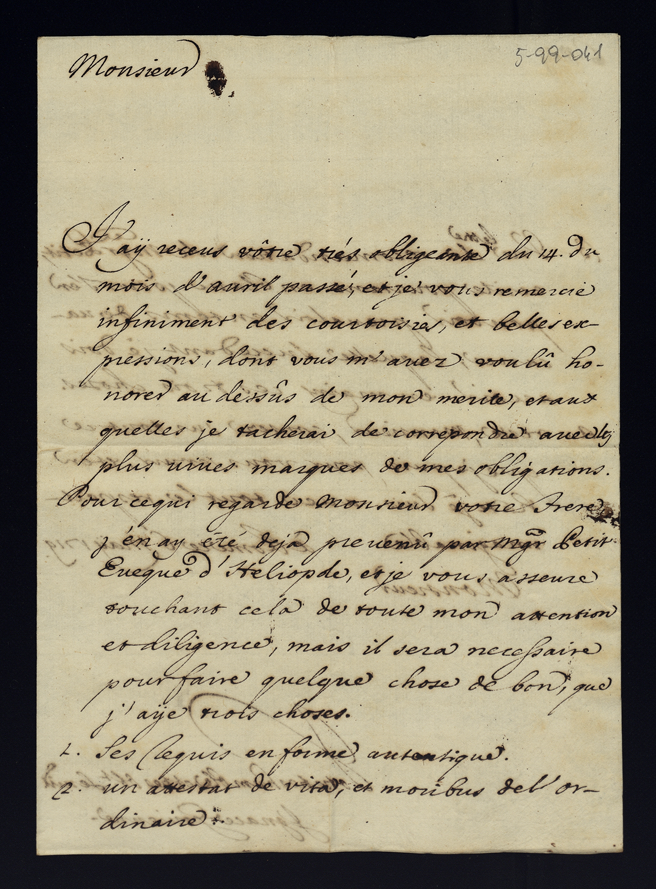 5-99-041
Monsieur
J'aÿ receus vôtre trés obligeante du 14. du
mois d'auril passé, et je vous remercie
infiniment des courtoisies, et belles ex-
pressions, dont vous m'avez voulû ho-
norer au dessûs de mon merite, et aux
quelles je tacherai de correpondre avec les
plus vives marques de mes obligations.
Pour cequi regarde Monsieur votre Frere
j'en ay été deja prevenû par Mgr Petit
Eveque d'Heliopde, et je vous asseure
touchant cela de toute mon attention
et diligence, mais il sera necessaire
pour faire quelque chose de bon, que
j'aÿe trois choses.
1. Ses en forme autentique.
2. un attestat de vita, et moribus de l'or-
dinaire